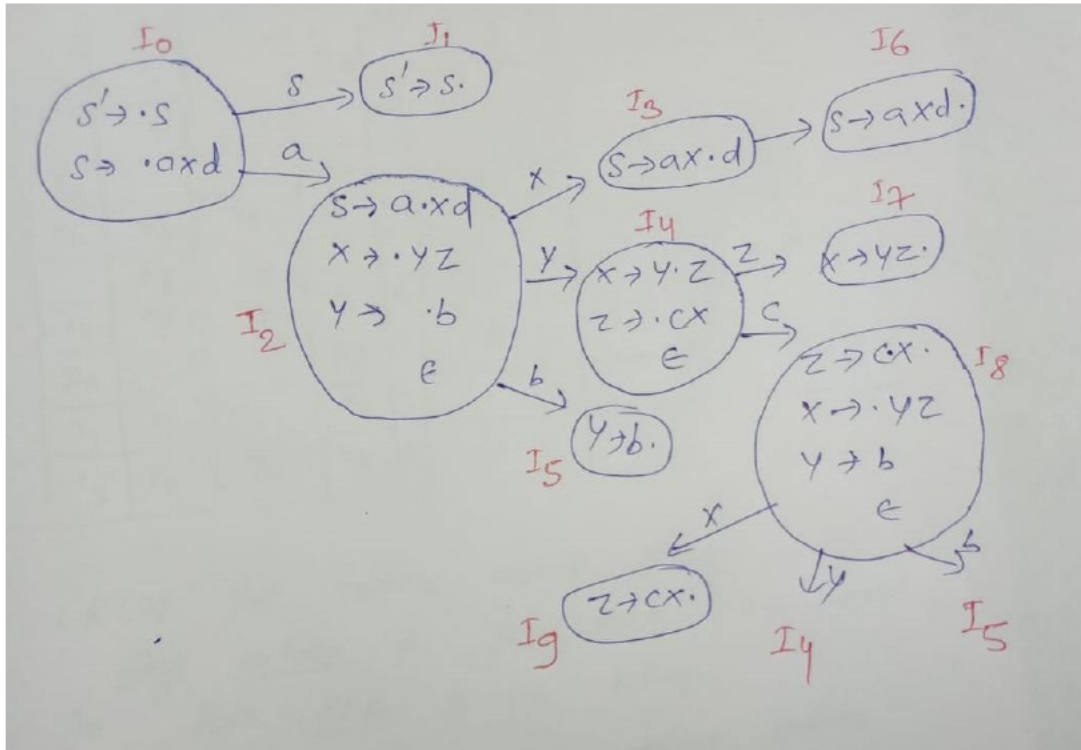 I0
S'→·S
S→ ·aXd
S
I1
S'→S·
a
I2
S→a·Xd
X→·YZ
Y→ ·b
ϵ
X
I3
S→aX·d
I6
S→aXd·
Y
I4
X→Y·Z
Z→·CX
ϵ
Z
I7
X→YZ·
C
I8
Z→C·X·
X→·YZ
Y→b
ϵ
b
I5
Y→b·
X
I9
Z→CX·
Y
I4
b
I5